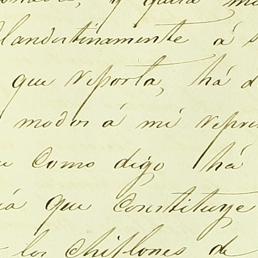 y quiza
Clandestinamente á
que reporta, há
modos á mi repre
como digo, há
que constituye
los chiflones de